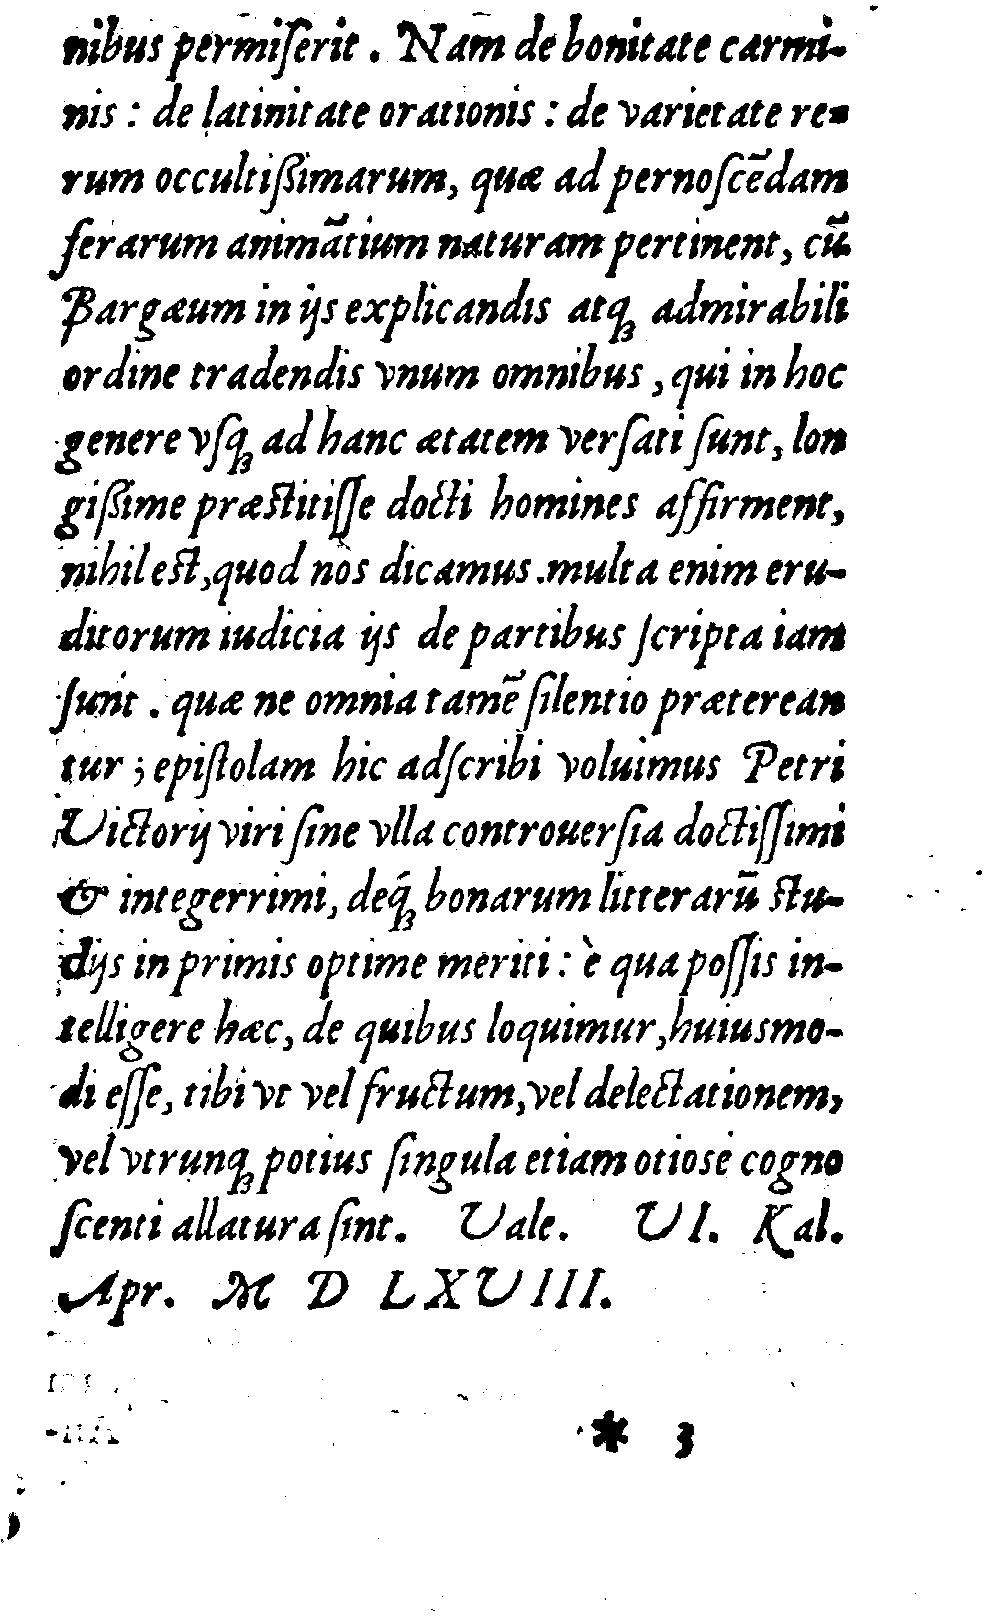 nibus permiſerit. Nam de bonitate carmi-
nis: de latinitate orationis: de varietate re-
rum occultißimarum, quæ ad pernoſcēdam
ferarum animātium naturam pertinent, cū
Bargæum in ijs explicandis atq; admirabili
ordine tradendis vnum omnibus, qui in hoc
genere vſq; ad hanc ætatem verſati ſunt, lon
gißime præstitiſſe docti homines affirment,
nihil est, quod nos dicamus. multa enim eru-
ditorum iudicia ijs de partibus ſcripta iam
ſunt. quæ ne omnia tamē ſilentio præterean
tur; epiſtolam hic adſcribi voluimus Petri
Victorij viri ſine vlla controuerſia doctiſſimi
& integerrimi, deq́; bonarum litterarū stu-
dijs in primis optime meriti: è qua poſſis in-
telligere hæc, de quibus loquimur, huiusmo-
di eſſe, tibi vt vel fructum, vel delectationem,
vel vtrunq; potius ſingula etiam otiosè cogno
ſcenti allatura ſint. Vale. VI. Kal.
Apr. M D LXVIII.
* 3